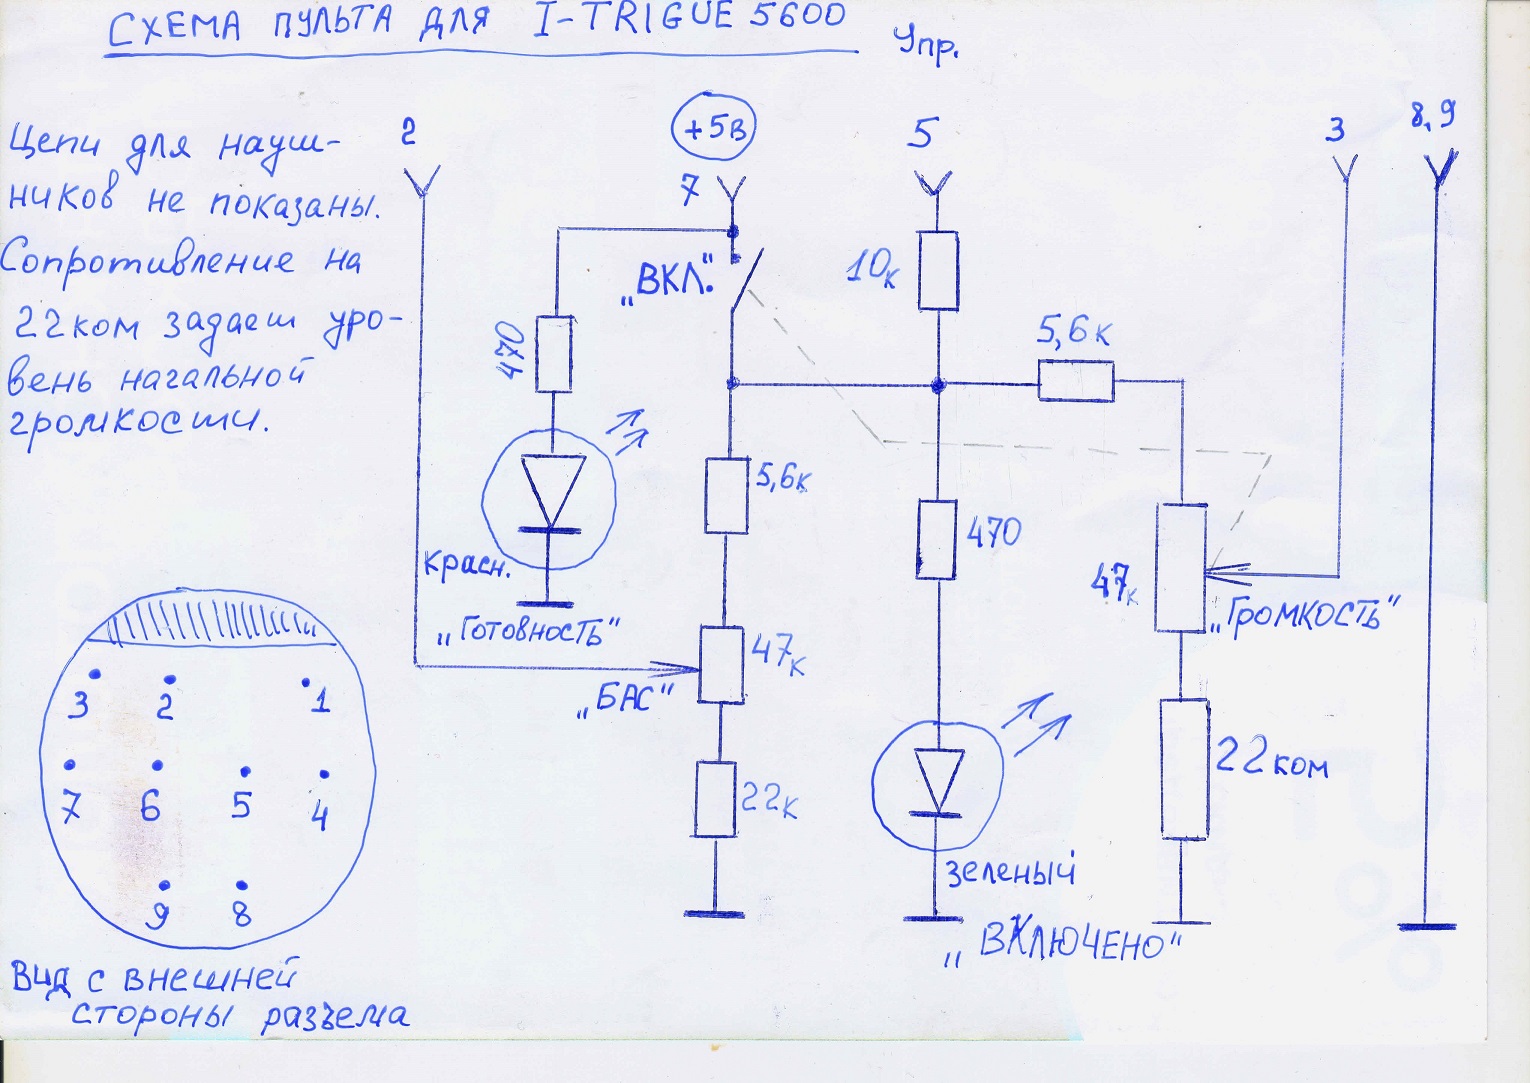 СХЕМА ПУЛЬТА ДЛЯ I-TRIGUE 5600
Упр.
Цепи для науш-
ников не показаны.
Сопротивление на
22ком задает уро-
вень начальной
громкости.
2
+5в
7
5
3
8,9
„ВКЛ."
10к
5,6к
470
5,6к
470
красн.
„Готовность"
47к
„БАС"
47к
„Громкость"
22к
22ком
зеленый
„ВКЛЮЧЕНО"
3 2 1
7 6 5 4
9 8
Вид с внешней
стороны разъема